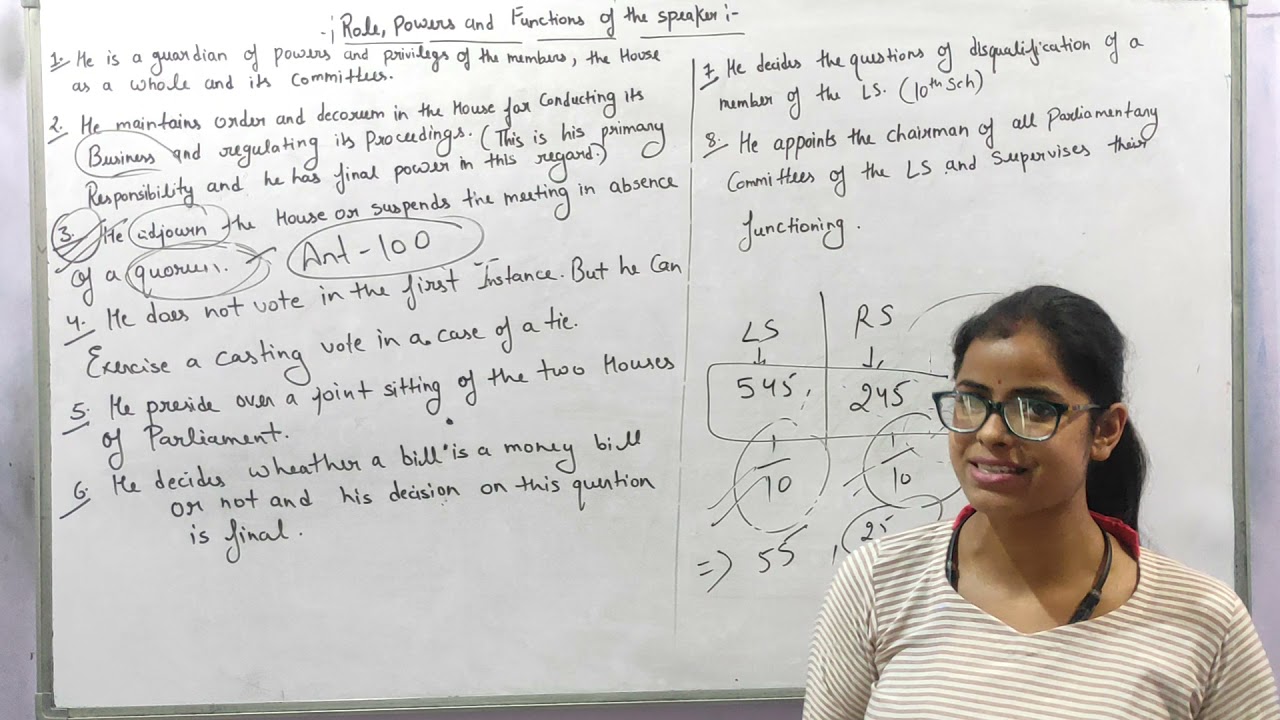 -; Role, Powers and Functions of the speaker :-
1. He is a guardian of powers and privilegs of the members, the House
as a whole and its committees.
2. He maintains order and decorum in the House for conducting its
Business and regulating its Proceedings. (This is his primary
Responsibility and he has final power in this regard.)
3. He adjourn the House or suspends the meeting in absence
of a quorum.
Art-100
4. He does not vote in the first Instance. But he can
Exercise a casting vote in a case of a tie.
5. He preside over a joint sitting of the two Houses
of Parliament.
6. He decides wheather a bill is a money bill
or not and his decision on this question
is final.
7. He decides the questions of disqualification of a
member of the LS. (10th Sch)
8. He appoints the chairman of all Parliamentary
Committees of the LS and Supervises their
functioning.
LS RS
545, 245
1/10 1/10
=> 55, 25